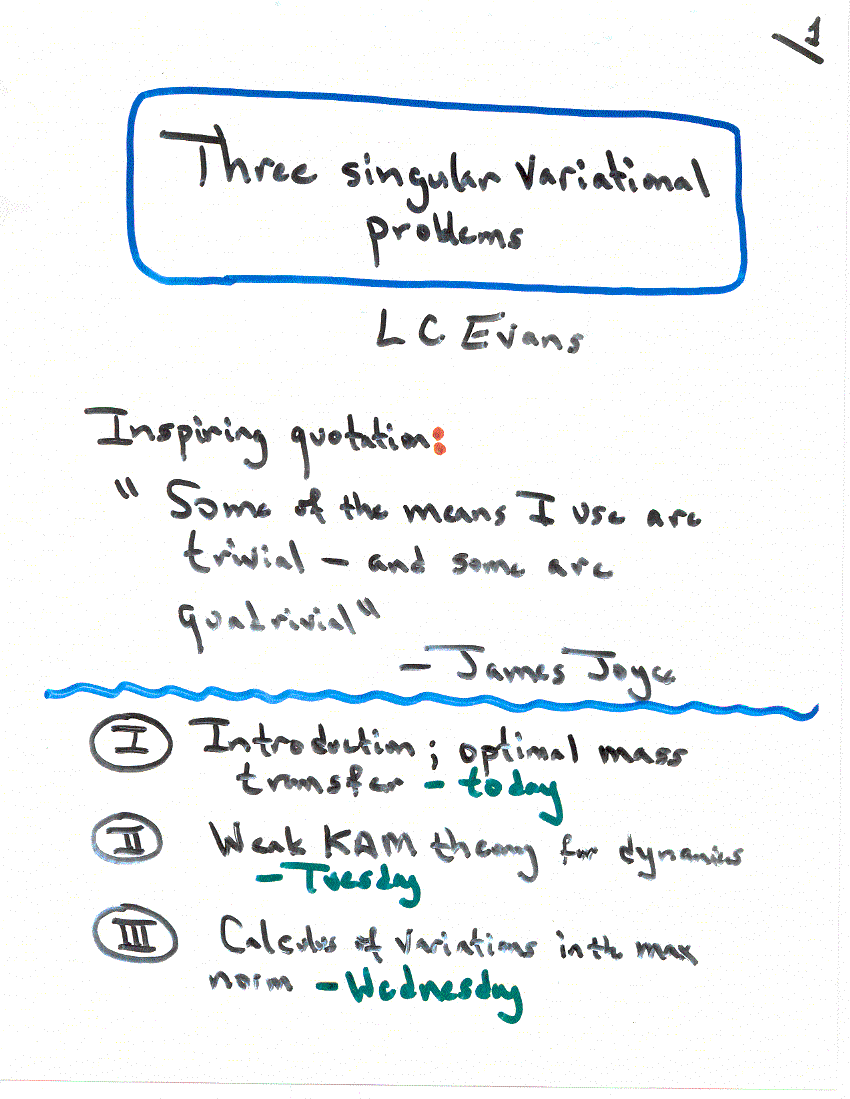 1
Three singular variational
problems
L C Evans
Inspiring quotation:
" Some of the means I use are
trivial – and some are
quadrivial"
– James Joyce
I Introduction; optimal mass
transfer – today
II Weak KAM theory for dynamics
– Tuesday
III Calculus of variations in the max
norm – Wednesday